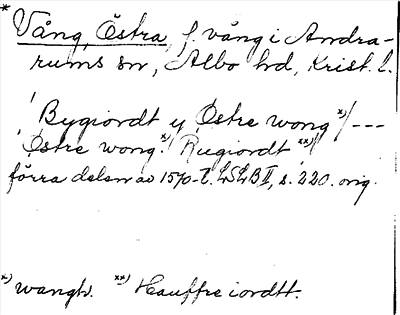 * Vång, Östra, f. vång i Andra-
rums sn, Albo hd, Krist. l.
"Bygiordt y Östre wong *)/---
Östre wong.*) Rugiordt **)/
förra delen av 1570-t. LSLB II, s. 220. orig.
*) wangh. **) Hauffre iordtt.